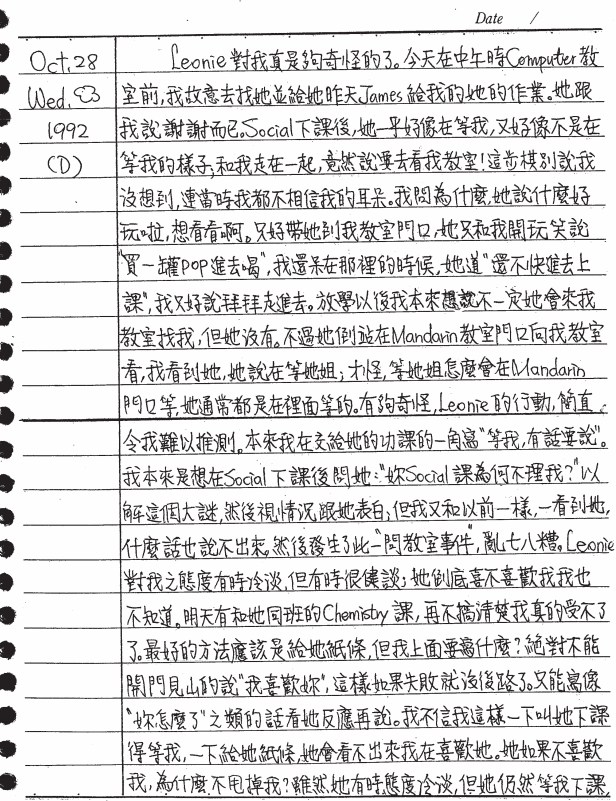 Date /
Oct. 28 Leonie對我真是夠奇怪的了。今天在中午時Computer教
Wed. 室前,我故意去找她並給她昨天James給我的她的作業。她跟
1992 我說謝謝而已。Social下課後,她一乎好像在等我,又好像不是在
(D) 等我的樣子,和我走在一起,竟然說要去看我教室!這步棋別說我
沒想到,連當時我都不相信我的耳朵。我問為什麼,她說什麼好
玩啦,想看看啊。只好帶她到我教室門口,她又和我開玩笑說
"買一罐POP進去喝",我還呆在那裡的時候,她道"還不快進去上
課",我只好說拜拜走進去。放學以後我本來想說不一定她會來我
教室找我,但她沒有。不過她倒站在Mandarin教室門口向我教室
看,我看到她,她說在等她姐;才怪,等她姐怎麼會在Mandarin
門口等,她通常都是在裡面等的。有夠奇怪,Leonie的行動,簡直
令我難以推測。本來我在交給她的功課的一角寫"等我,有話要說"。
我本來是想在Social下課後問她:"妳Social課為何不理我?"以
解這個大謎,然後視情況,跟她表白;但我又和以前一樣,一看到她,
什麼話也說不出來,然後發生了此一"問教室事件",亂七八糟。Leonie
對我之態度有時冷淡,但有時很健談;她倒底喜不喜歡我我也
不知道。明天有和她同班的Chemistry課,再不搞清楚我真的受不了
了。最好的方法應該是給她紙條,但我上面要寫什麼?絕對不能
開門見山的說"我喜歡妳",這樣如果失敗就沒後路了。只能寫像
"妳怎麼了"之類的話看她反應再說。我不信我這樣一下叫她下課
得等我,一下給她紙條,她會看不出來我在喜歡她。她如果不喜歡
我,為什麼不甩掉我?雖然她有時態度冷淡,但她仍然等我下課,